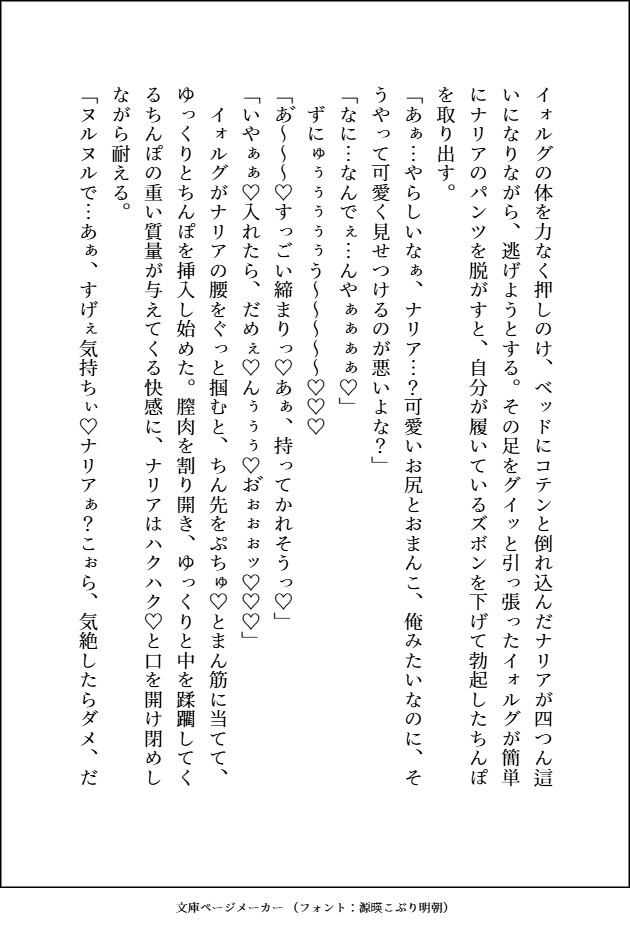 イォルグの体を力なく押しのけ、ベッドにコテンと倒れ込んだナリアが四つん這
いになりながら、逃げようとする。その足をグイッと引っ張ったイォルグが簡単
にナリアのパンツを脱がすと、自分が履いているズボンを下げて勃起したちんぽ
を取り出す。
「あぁ…やらしいなぁ、ナリア…？可愛いお尻とおまんこ、俺みたいなのに、そ
うやって可愛く見せつけるのが悪いよな？」
「なに…なんでぇ…んやぁぁぁぁ♡」
ずにゅぅぅぅぅぅう〜〜〜〜〜♡♡♡
「あ゙〜〜〜♡すっごい締まりっ♡あぁ、持ってかれそうっ♡」
「いやぁぁ♡入れたら、だめぇ♡んぅぅぅ♡お゙ぉぉぉッ♡♡♡」
イォルグがナリアの腰をぐっと掴むと、ちん先をぷちゅ♡とまん筋に当てて、
ゆっくりとちんぽを挿入し始めた。膣肉を割り開き、ゆっくりと中を蹂躙してく
るちんぽの重い質量が与えてくる快感に、ナリアはハクハク♡と口を開け閉めし
ながら耐える。
「ヌルヌルで…あぁ、すげぇ気持ちぃ♡ナリアぁ？こぉら、気絶したらダメ、だ
文庫ページメーカー （フォント：源暎こぶり明朝）